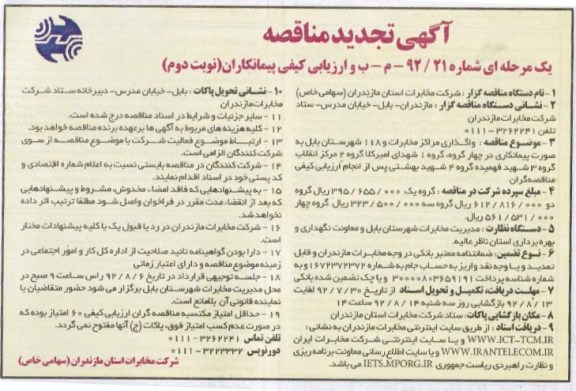 آگهی تجدید مناقصه
یک مرحله ای شماره ۹۲/۲۱ – م – ب و ارزیابی کیفی پیمانکاران (نوبت دوم)
۱ - نام دستگاه مناقصه گزار : شرکت مخابرات استان مازندران (سهامی خاص)
۲ - نشانی دستگاه مناقصه گزار : مازندران- بابل- خیابان مدرس- ستاد
شرکت مخابرات مازندران
تلفن : ۳۲۶۲۲۴۱-۰۱۱۱
۳ - موضوع مناقصه : واگذاری مراکز مخابرات و ۱۱۸ شهرستان بابل به
صورت پیمانکاری در چهار گروه، گروه ۱ شهدای امیرکلا گروه ۲ مرکز انقلاب
گروه ۳ شهید فهمیده گروه ۴ شهید بهشتی پس از انجام ارزیابی کیفی
مناقصه‌گران
۴ - مبلغ سپرده شرکت در مناقصه : گروه یک ۳۹۵/۶۵۵/۰۰۰ ریال گروه
دو ۶۱۲/۸۱۶/۰۰۰ ریال گروه سه ۳۲۳/۵۰۰/۰۰۰ ریال گروه چهار
۵۶۱/۵۳۱/۰۰۰ ریال
۵ - دستگاه نظارت : مدیریت مخابرات شهرستان بابل و معاونت نگهداری و
بهره برداری استان ناظر عالیه.
۶ - نوع تضمین : ضمانتنامه معتبر بانکی در وجه مخابرات مازندران و قابل
تمدید و یا وجه نقد واریز به حساب جام به شماره ۱۶۷۲۳۷۲۳۷۲ و به
شماره شناسه پرداخت ۳۰۰۰۰۰۸۰۳۶۵۹۱۹۱ و یا چک تضمین شده بانکی
۷ - مهلت دریافت، تکمیل و تحویل اسناد : از تاریخ ۹۲/۷/۳۰ لغایت
۹۲/۸/۱۳ بازگشایی روز سه شنبه ۹۲/۸/۱۴ ساعت ۱۴
۸ - مکان بازگشایی پاکات : ستاد شرکت مخابرات استان مازندران
۹ - دریافت اسناد : از طریق سایت اینترنتی مخابرات مازندران به نشانی :
WWW.ICT-TCM.IR و یا سایت اینترنتی شرکت مخابرات ایران
WWW.IRANTELECOM.IR و یا سایت اطلاع رسانی معاونت برنامه ریزی
و نظارت راهبردی ریاست جمهوری IETS.MPORG.IR می باشد.
۱۰ - نشانی تحویل پاکات : بابل- خیابان مدرس- دبیرخانه ستاد شرکت
مخابرات مازندران
۱۱ - سایر جزئیات و شرایط در اسناد مناقصه درج شده است.
۱۲ - کلیه هزینه های مربوط به آگهی ها برعهده برنده مناقصه خواهد بود.
۱۳ - ارتباط موضوع فعالیت شرکت با موضوع مناقصه از سوی
شرکت کنندگان الزامی است.
۱۴ - شرکت کنندگان در مناقصه بایستی نسبت به اعلام شماره اقتصادی و
کد پستی خود در اسناد اقدام نمایند.
۱۵ - به پیشنهادهایی که فاقد امضاء، مخدوش، مشروط و پیشنهادهایی
که بعد از انقضاء مدت مقرر در فراخوان واصل شود مطلقا ترتیب اثر داده
نخواهد شد.
۱۶ - شرکت مخابرات مازندران در رد یا قبول یک یا کلیه پیشنهادات مختار
است.
۱۷ - دارا بودن گواهینامه تائید صلاحیت از اداره کل کار و امور اجتماعی در
زمینه موضوع مناقصه و دارای اعتبار زمانی
۱۸ - جلسه توجیهی قرارداد در تاریخ ۹۲/۸/۶ راس ساعت ۹ صبح در
محل مدیریت مخابرات شهرستان بابل برگزار می شود حضور متقاضیان یا
نماینده قانونی آن بلامانع است.
۱۹ - حداقل امتیاز مکتسبه مناقصه گران ارزیابی کیفی ۶۰ امتیاز بوده که
در صورت عدم کسب امتیاز فوق، پاکات (ج) آنها مفتوح نمی گردد.
تلفن تماس : ۳۲۶۲۲۴۱-۰۱۱۱
دورنویس : ۳۲۲۲۳۳۲-۰۱۱۱
شرکت مخابرات استان مازندران (سهامی خاص)